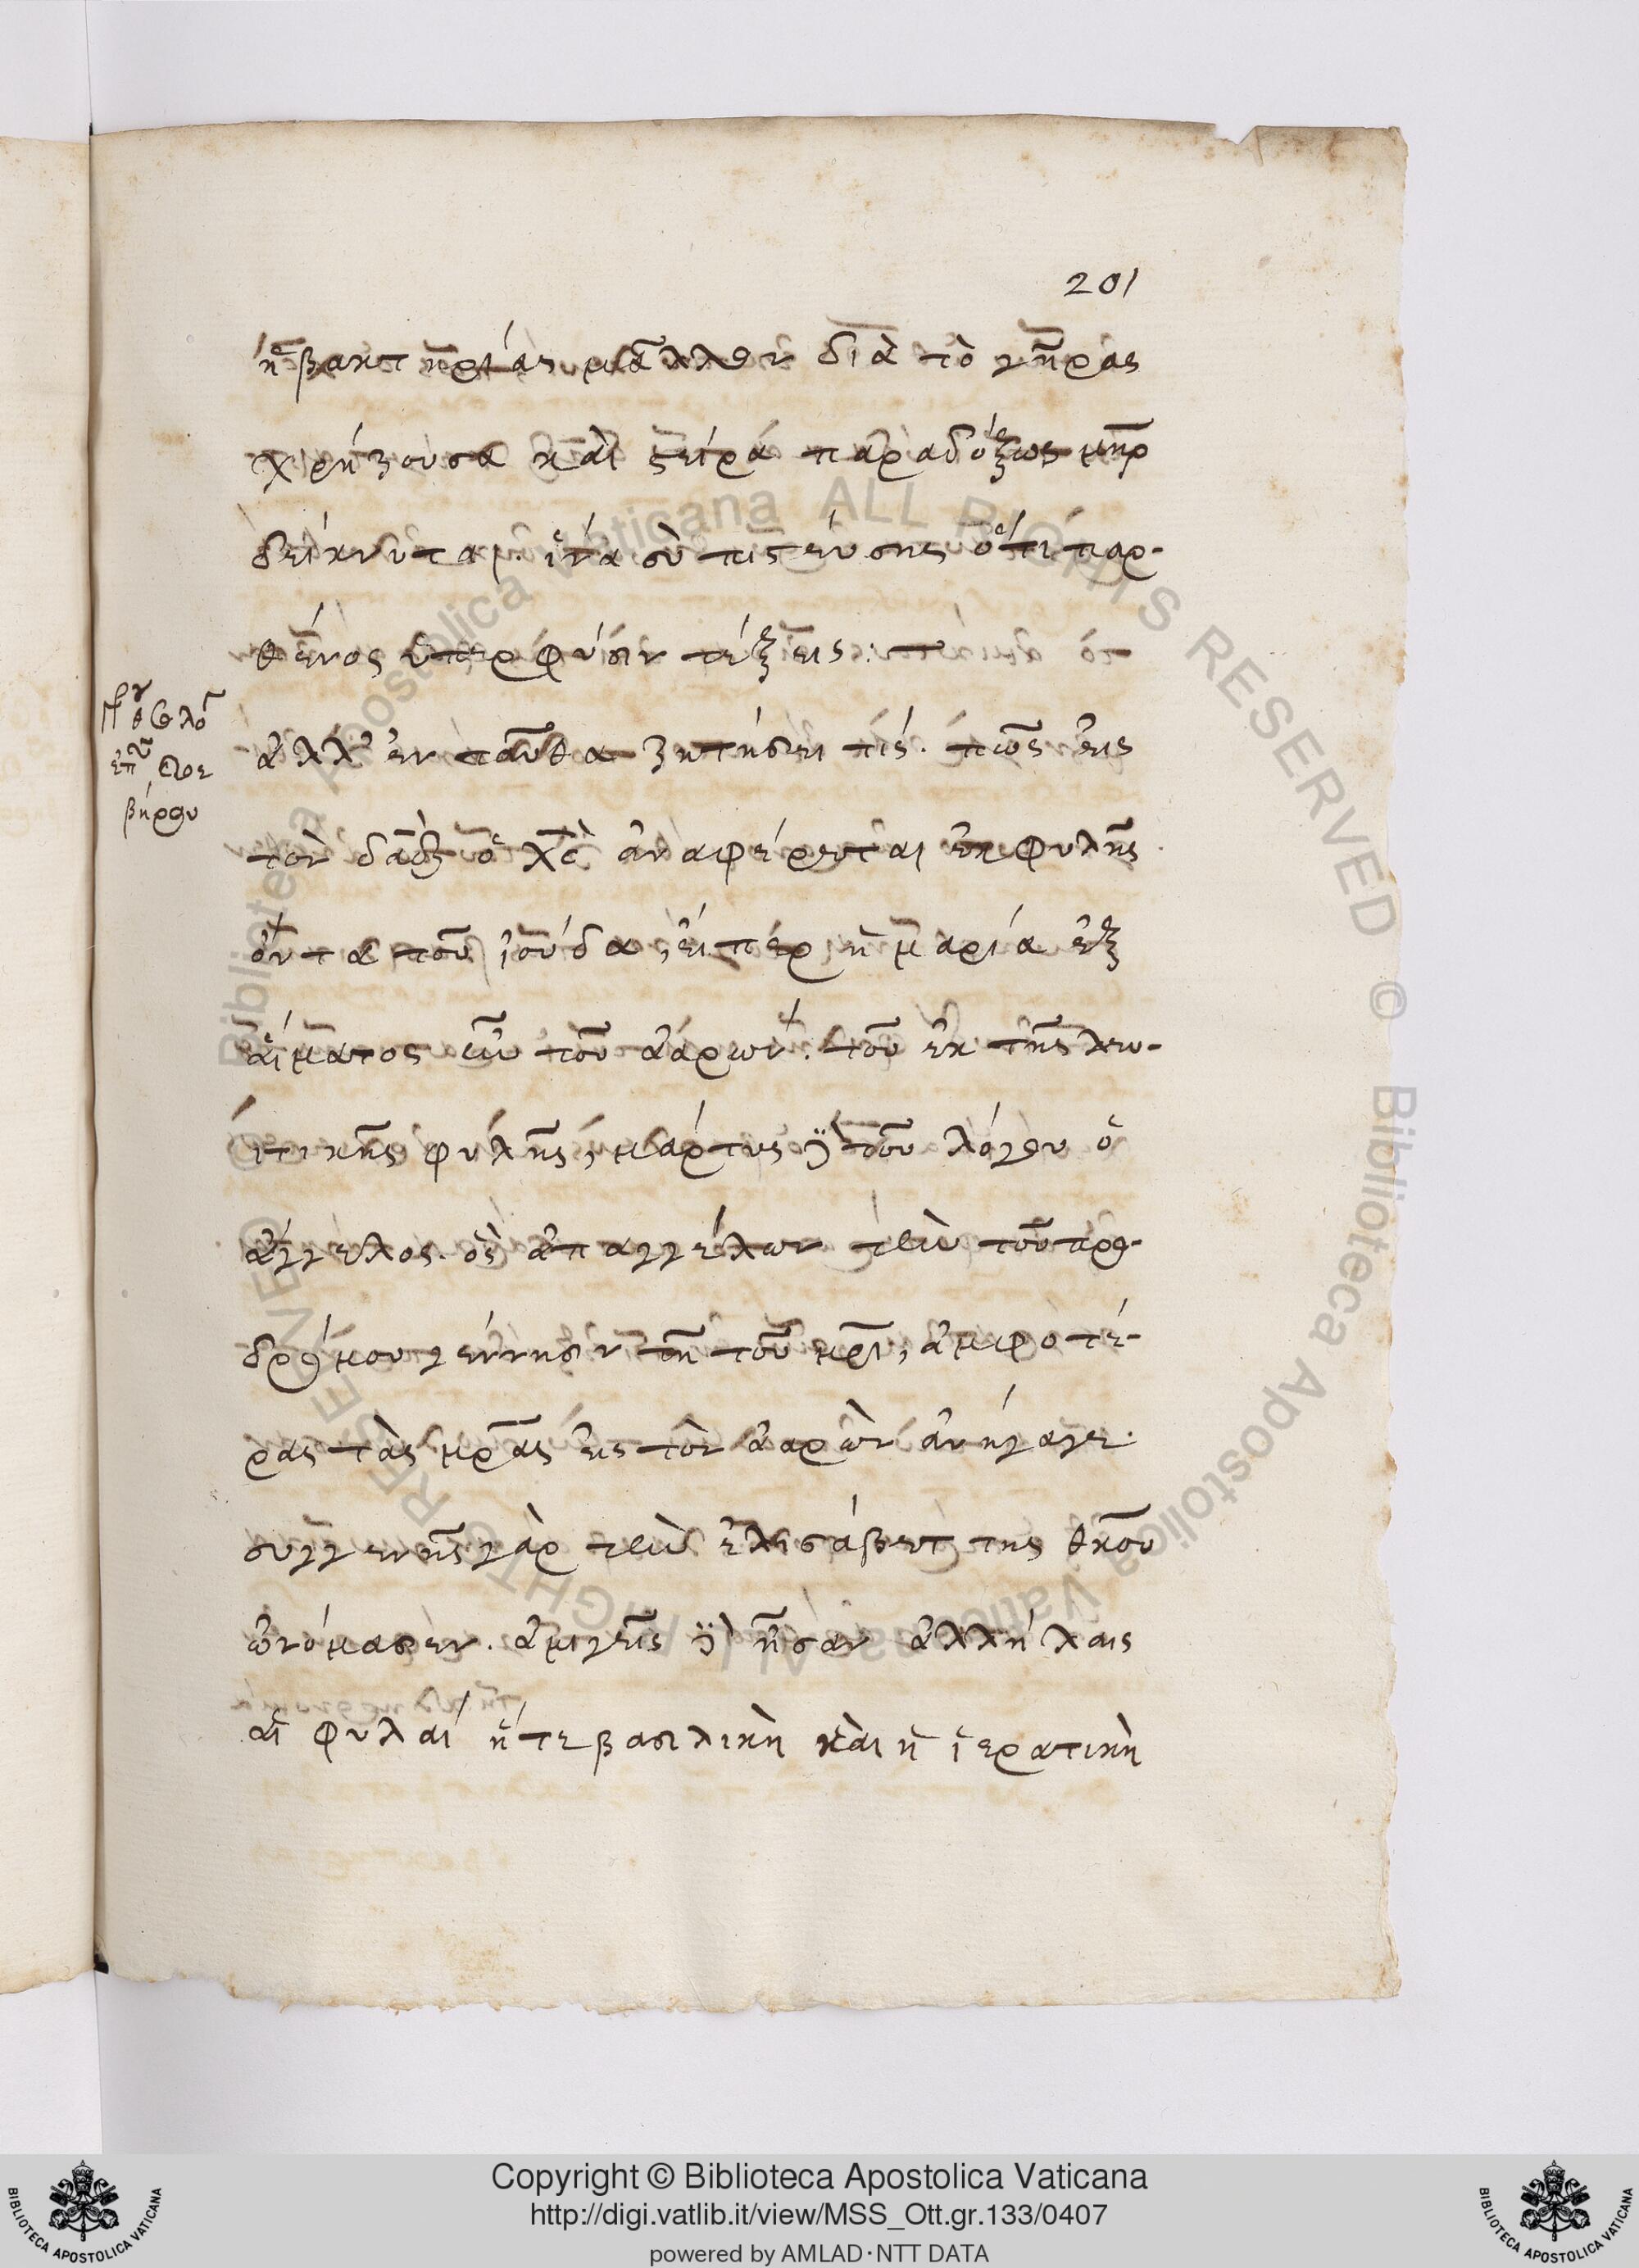 201
ἡ βακτηρίας μᾶλλον διὰ τὸ γῆρας
χρήζουσα καὶ στείρα παραδόξως μηρ
δείκνυται. ἵνα σὺ πιστεύσης ὅτι παρ-
θένος ὑπὲρ φύσιν τέξεις.
ἀλλ' ἐνταῦθα ζητήσει τίς. πῶς εἰς
τὸν δαδ ὁ χς ἀναφέρεται ἐκ φυλῆς
ὄντα τοῦ ἰούδα, εἴπερ ἡ μαρία ἐξ
αἵματος ἦν τοῦ ἀαρών. τοῦ ἐκ τῆς λευ-
ιτικῆς φυλῆς, μάρτυς τοῦ λόγου ὁ
ἄγγελος. ὃς ἀπαγγέλων τὴν τοῦ προ-
δρόμου γέννησιν τῆ τοῦ μρι, ἀμφοτέ-
ρας τὰς μρας εἰς τὸν ἀαρὼν ἀνήγαγε.
συγγενῆς γὰρ τὴν ἐλισάβετ της θκου
ὠνόμασεν. ἀμιγεῖς ἦσαν ἀλλήλαις
αἱ φυλαί ἥτε βασιλικὴ καὶ ἡ ἱερατικὴ
βήρου
Copyright © Biblioteca Apostolica Vaticana
http://digi.vatlib.it/view/MSS_Ott.gr.133/0407
powered by AMLAD·NTT DATA
BIBLIOTECA APOSTOLICA VATICANA
BIBLIOTECA APOSTOLICA VATICANA
Biblioteca Apostolica Vaticana ALL RIGHTS RESERVED © Biblioteca Apostolica Vaticana ALL RIGHTS RESERVED ©